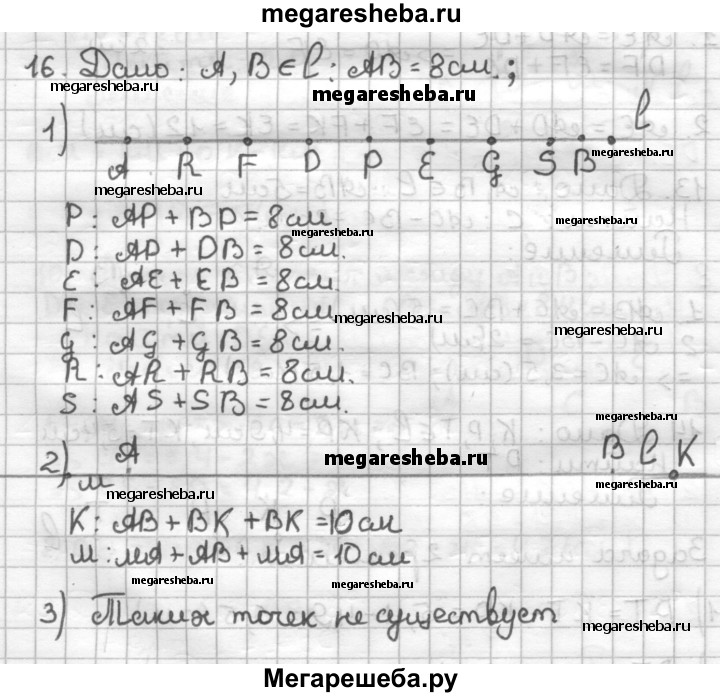 megaresheba.ru
16. Дано: A, B ∈ l: AB = 8 см.;
megaresheba.ru
megaresheba.ru
1)
l
A R F D P E G S B
megaresheba.ru
megaresheba.ru
P: AP + BP = 8 см.
megaresheba.ru
D: AD + DB = 8 см.
E: AE + EB = 8 см.
F: AF + FB = 8 см
megaresheba.ru
megaresheba.ru
G: AG + GB = 8 см.
R: AR + RB = 8 см.
S: AS + SB = 8 см.
megaresheba.ru
2) A B l K
megaresheba.ru
м
megaresheba.ru
megaresheba.ru
K: AB + BK + BK = 10 см
м: мA + AB + мA = 10 см
megaresheba.ru
megaresheba.ru
3) Таких точек не существует
megaresheba.ru
Мегарешеба.ру